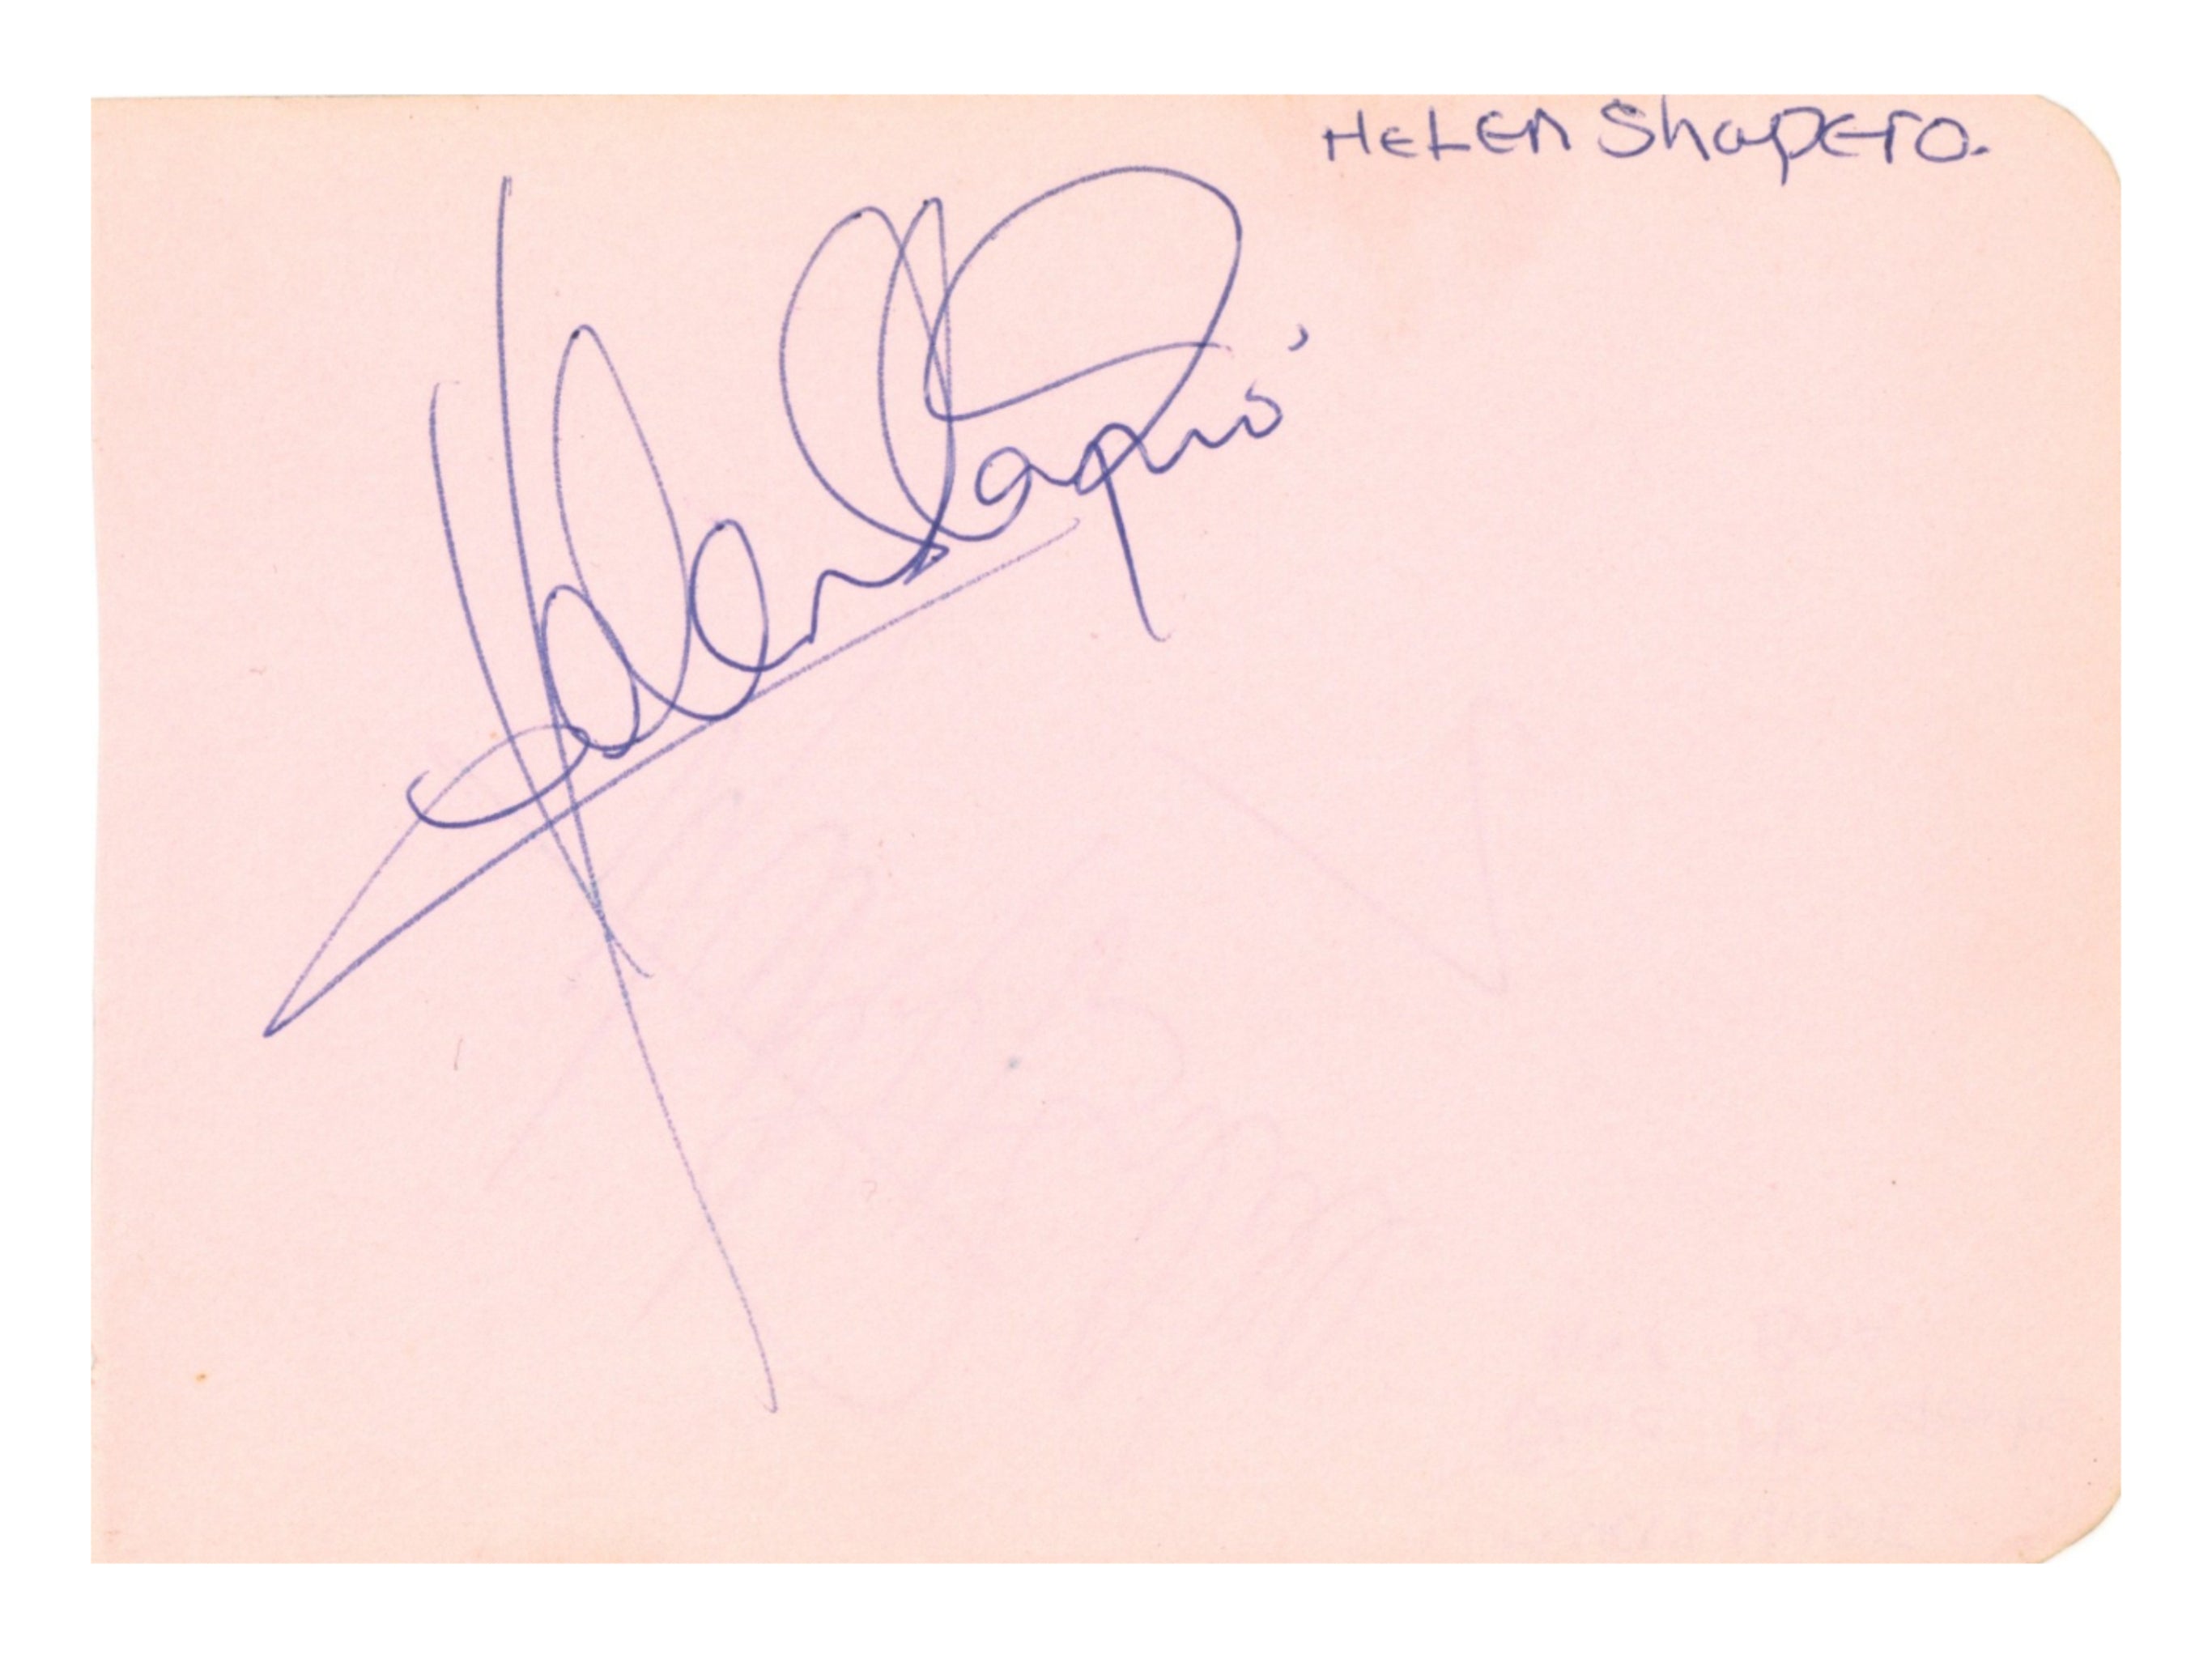 HELEN ShapERO.
Helen Shapiro